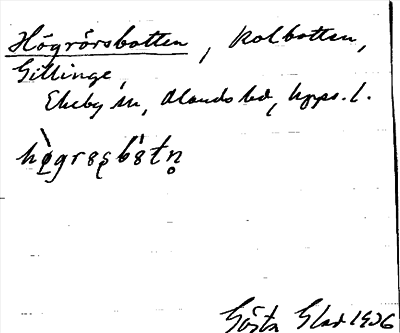 Högrörsbotten, Kolbotten,
Gillinge,
Ekeby sn, Olands hd, Upps. l.
Gösta Glad 1926